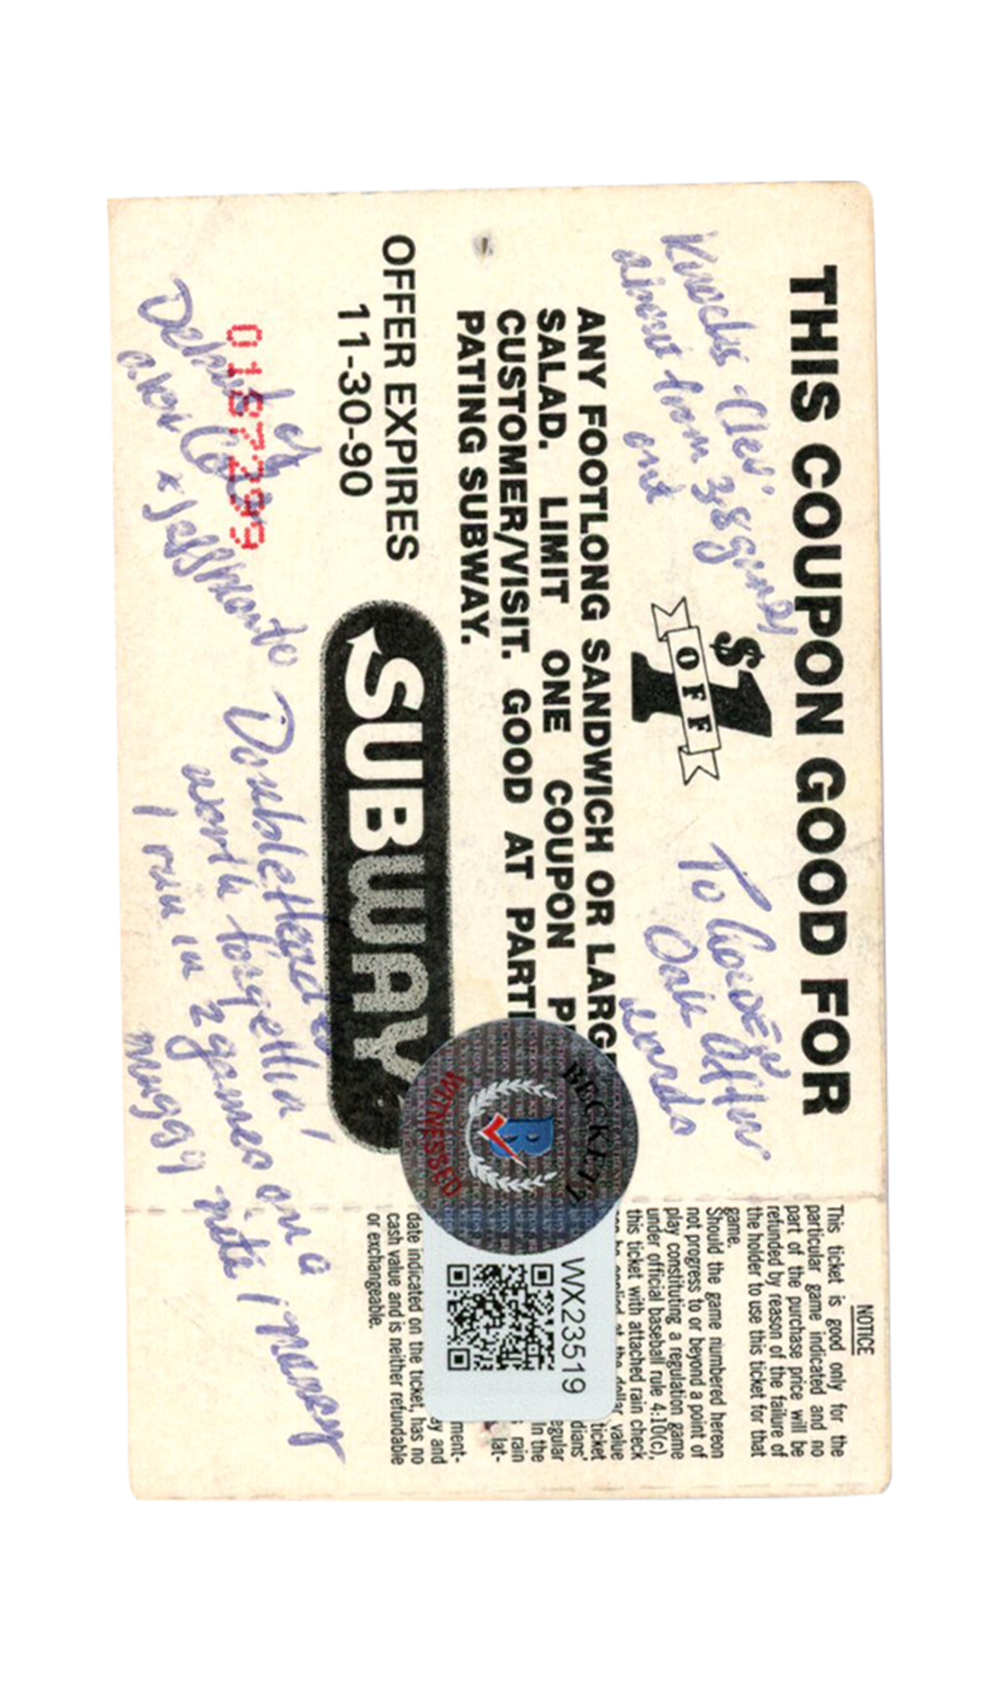 THIS COUPON GOOD FOR
Knocks Clev.
about from 38 games
out
$1
OFF
To
ANY FOOTLONG SANDWICH OR LARGE
SALAD. LIMIT ONE COUPON P
CUSTOMER/VISIT. GOOD AT PARTI
PATING SUBWAY.
OFFER EXPIRES
11-30-90
SUBWAY
0187299
Debut of
Doublehead
worth forgettin!
1 run in 2 games on a
muggy nite
BECKETT
B
WITNESSED
WX23519
NOTICE
This ticket is good only for the
particular game indicated and no
part of the purchase price will be
refunded by reason of the failure of
the holder to use this ticket for that
game.
Should the game numbered hereon
not progress to or beyond a point of
play constituting a regulation game
under official baseball rule 4:10(c),
this ticket with attached rain check
be applied at the dollar value
ticket
dians'
egular
in the
rain
lat-
ment-
ay and
date indicated on the ticket, has no
cash value and is neither refundable
or exchangeable.